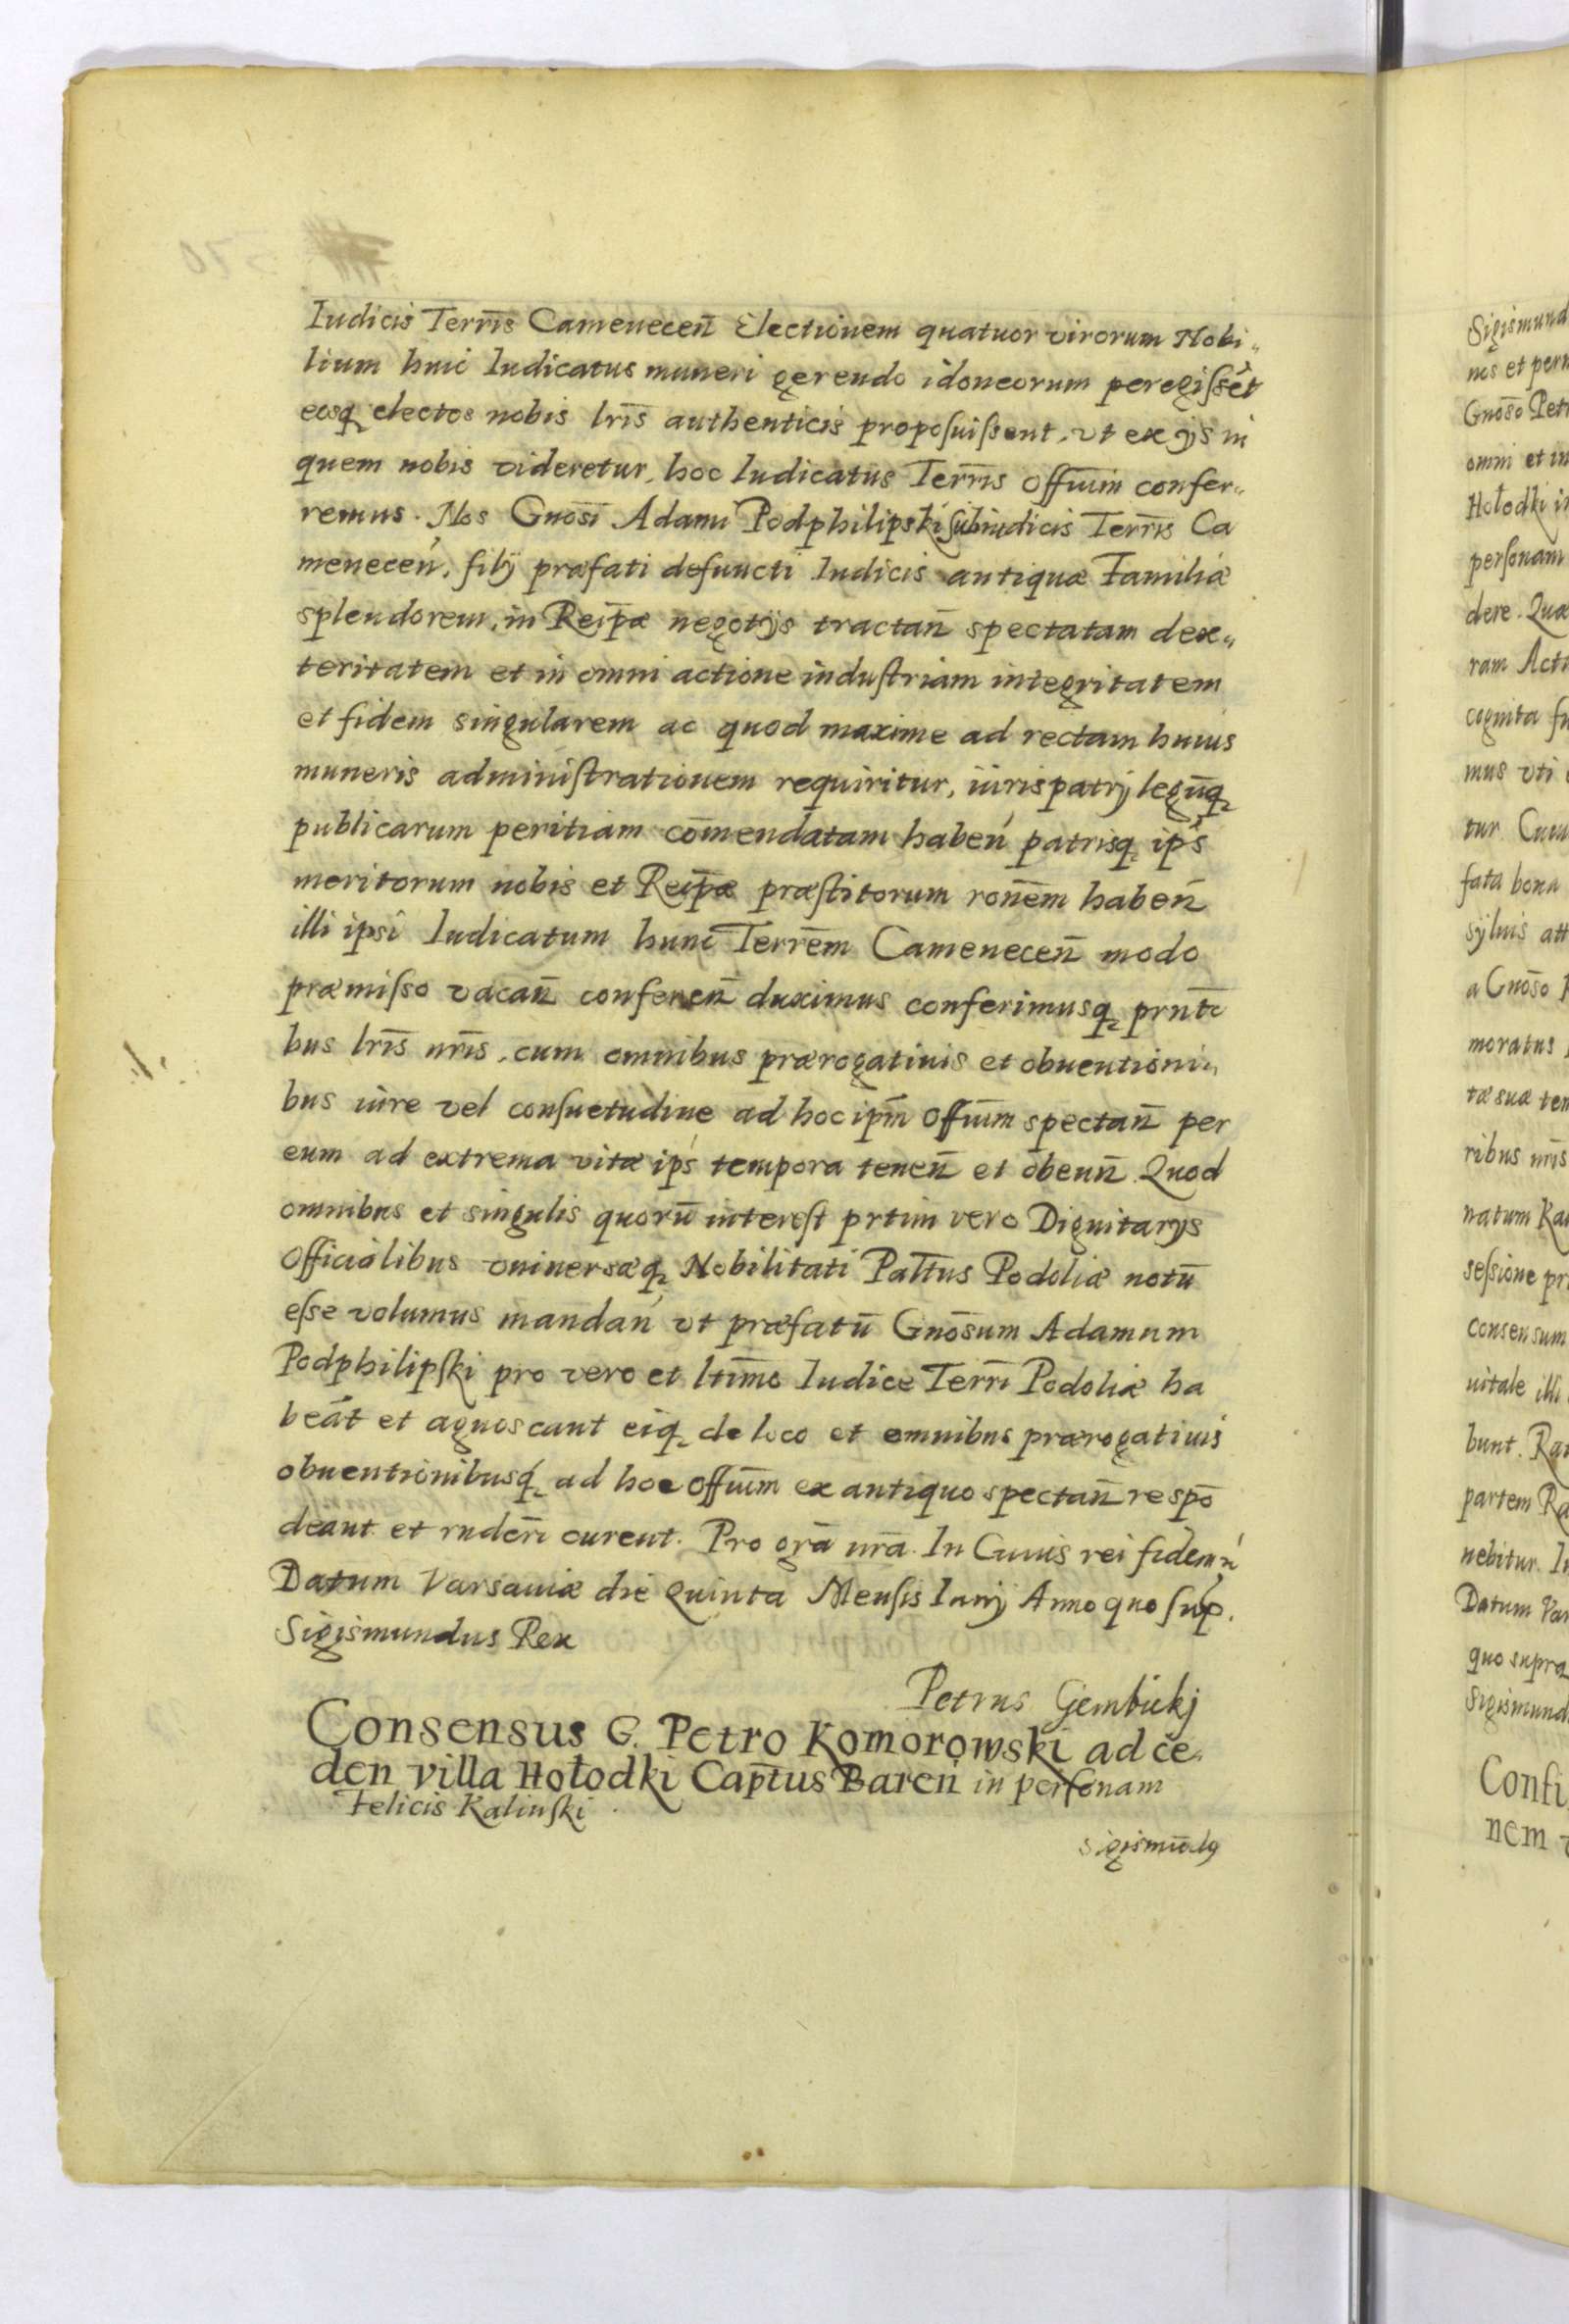 Iudicis Terrīs Camenecen̄ Electionem quatuor virorum Nobi„
lium huic Iudicatus muneri gerendo idoneorum peregiſsēt
eosq₂ electos nobis lrīs authenticis propoſuiſsent, vt ex ijs in
quem nobis videretur, hoc Iudicatus Terrīs offīum confer„
remus. Nos Gnōsi Adami Podphilipski Subiudicis Terrīs Ca
menecen̄, filij præfati defuncti Iudicis antiquæ Familiæ
splendorem, in Reip̄æ negotijs tractan̄ spectatam dex„
teritatem et in omni actione induſtriam integritatem
et fidem singularem ac quod maxime ad rectam huius
muneris adminiſtrationem requiritur, iuris patrij legūq₂
publicarum peritiam com̄endatam haben̄ patrisq₂ ip̄s
meritorum nobis et Reip̄æ præſtitorum ronēm haben̄
illi ipsi Iudicatum hunc Terrēm Camenecen̄ modo
præmiſso vacan̄ conferen̄ duximus conferimusq₂ prn̄ti
bus lrīs nrīs, cum omnibus prærogatiuis et obuentioni„
bus iure vel conſuetudine ad hoc ip̄m offīum spectan̄ per
eum ad extrema vitæ ip̄s tempora tenen̄ et obeun̄. Quod
omnibus et singulis quorū intereſt prtim vero Dignitarijs
Officialibus vniuersæq₂ Nobilitati Pal̄tus Podoliæ notū
eſse volumus mandan̄ vt præfatū Gnōsum Adamum
Podphilipſki pro vero et ltīmo Iudice Terrī Podoliæ ha
beāt et agnoscant eiq₂ de loco et omnibus prærogatiuis
obuentionibusq₂ ad hoc offīum ex antiquo spectan̄ respō
deant et rnderi curent. Pro grā nrā. In Cuius rei fidem
Datum Varsauiæ die Quinta Menſis Iunij Anno quo ſup.
Sigismundus Rex
Petrus Gembickj
Consensus G. Petro Komorowski ad ce„
den villa Hołodki Cap̄tus Baren̄ in perſonam
Felicis Kalinſki
Sigismūdꝯ
Sigismund
nos et per
Gnōso Petr
omni et in
Hołodki i
perſonam
dere. Quæ
ram Acti
cognita fu
mus vti
tur. Cum
fata bona
syluis att
a Gnōso
moratus
tæ suæ tem
ribus nrīs
natum Ka
seſsione pr
consensum
uitale illi
bunt. Ra
partem Ra
nebitur. In
Datum Var
quo supra
Sigismund
Confi
nem